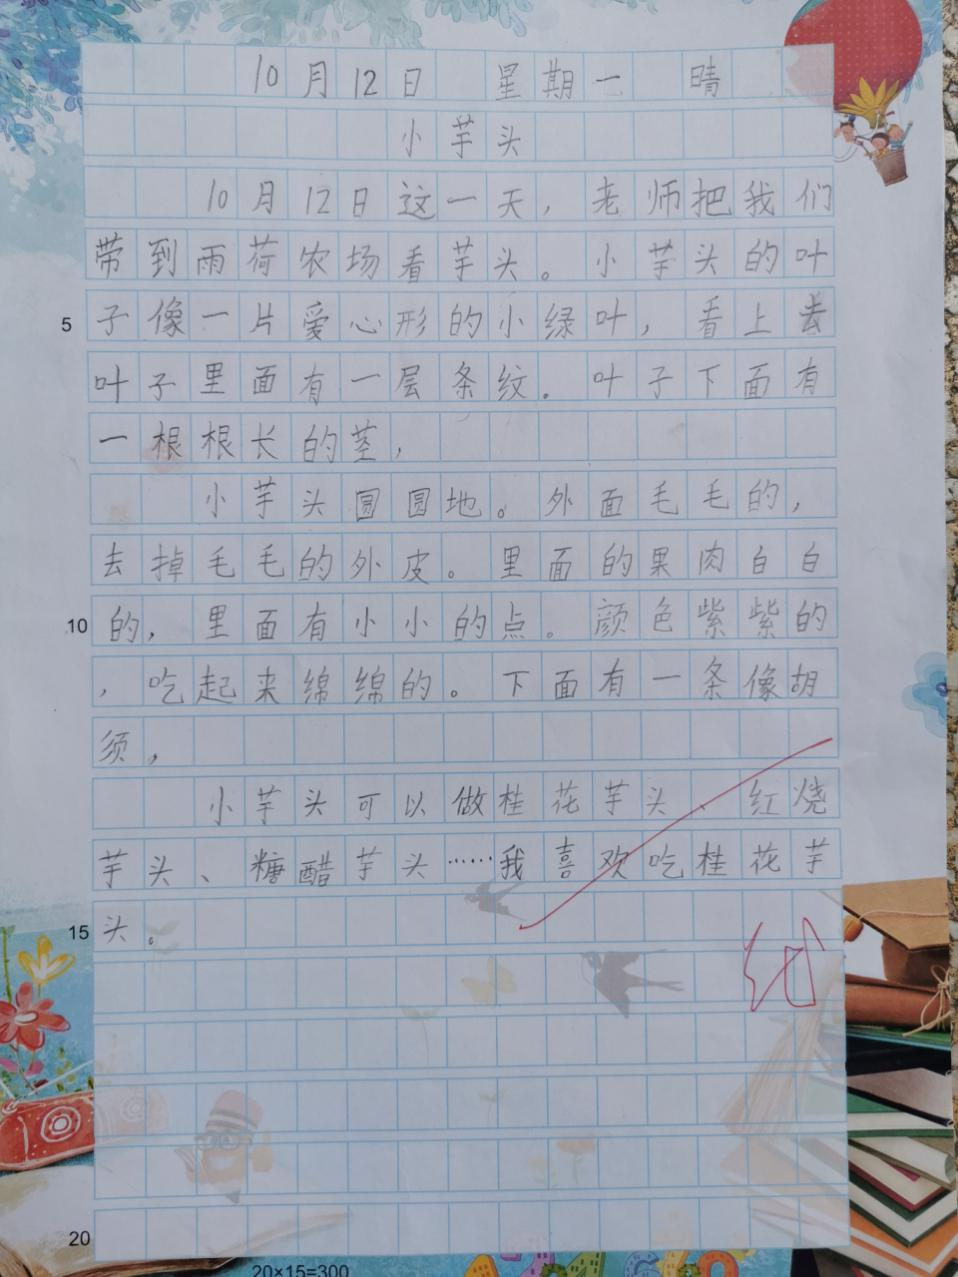 10月12日 星期一 晴
小芋头
10月12日这一天，老师把我们
带到雨荷农场看芋头。小芋头的叶
5 子像一片爱心形的小绿叶，看上去
叶子里面有一层条纹．叶子下面有
一根根长的茎，
小芋头圆圆地。外面毛毛的，
去掉毛毛的外皮。里面的果肉白白
10 的，里面有小小的点。颜色紫紫的
，吃起来绵绵的。下面有一条像胡
须，
小芋头可以做桂花芋头、红烧
芋头、糖醋芋头……我喜欢吃桂花芋
15 头。
20
20×15=300